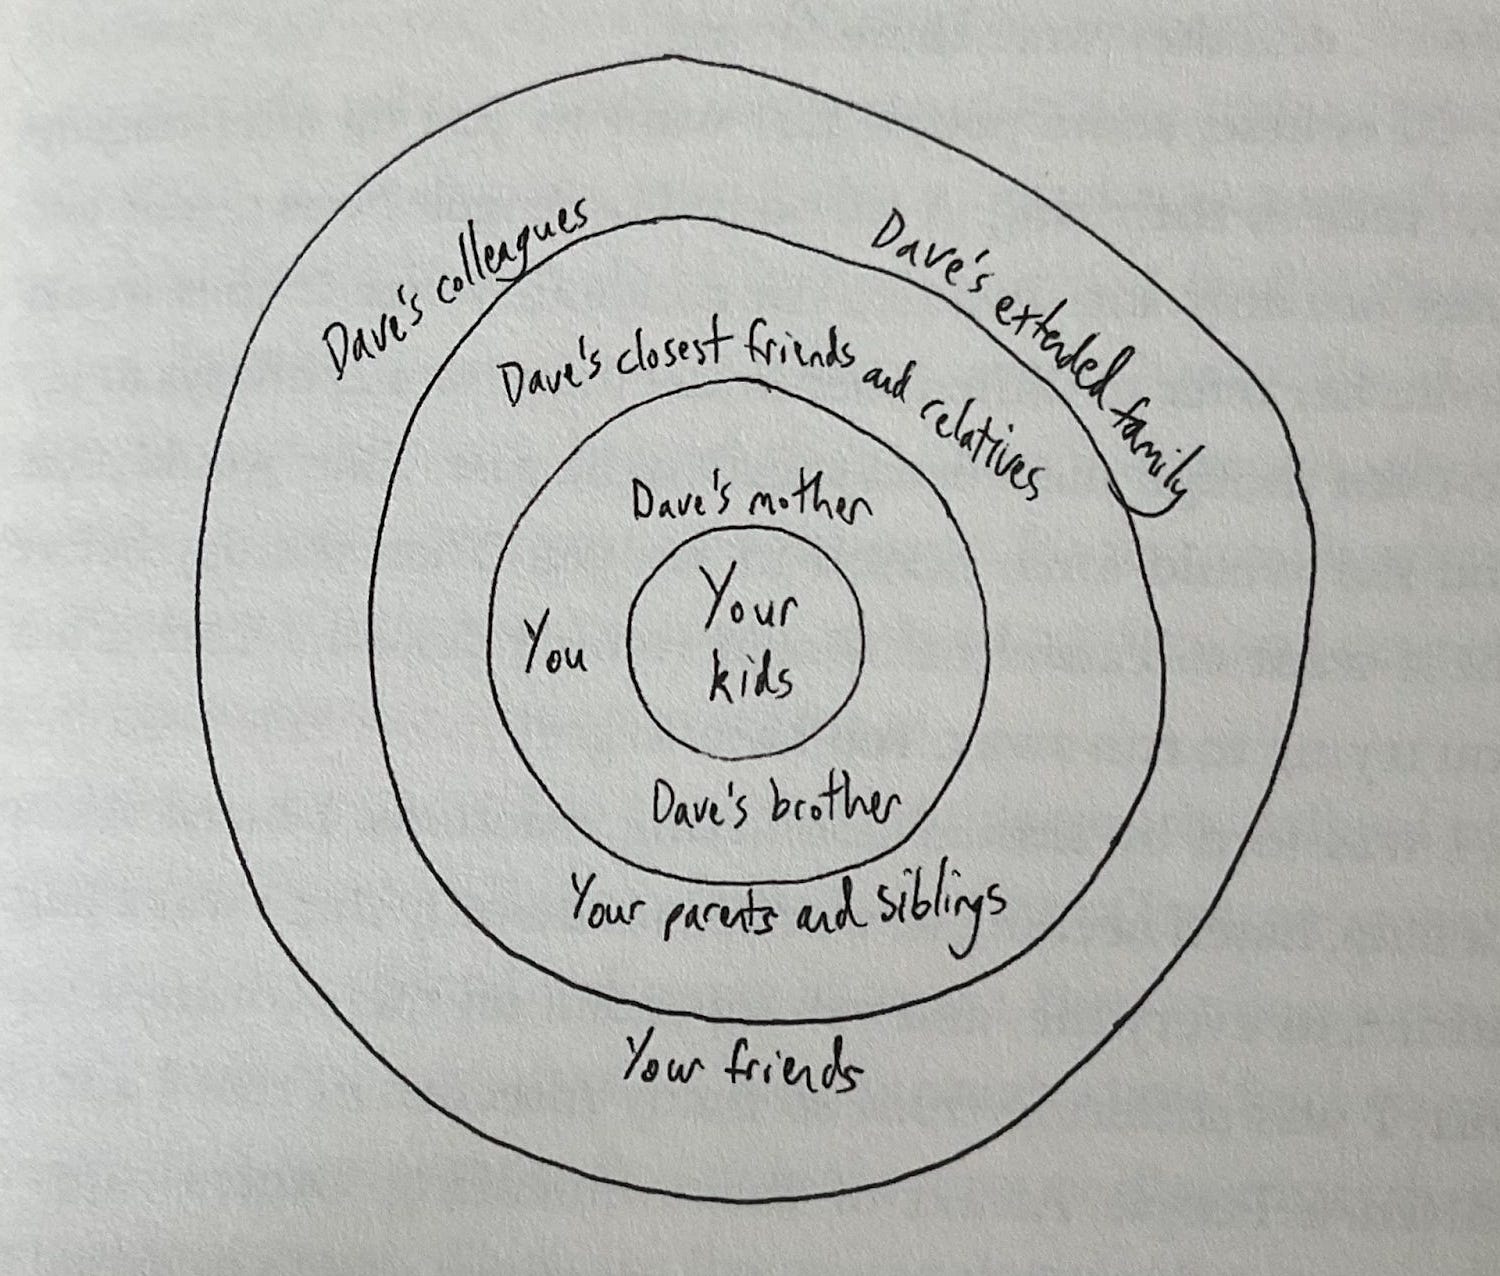 Dave's colleagues
Dave's extended family
Dave's closest friends and relatives
Dave's mother
Your
kids
You
Dave's brother
Your parents and siblings
Your friends